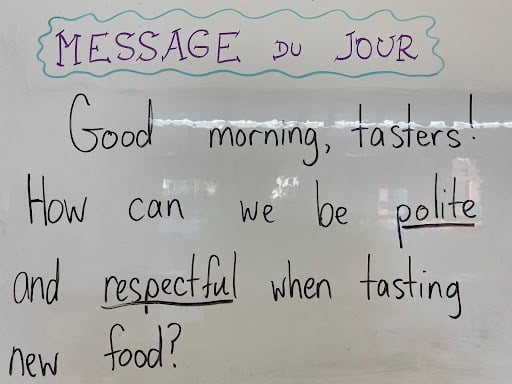 MESSAGE DU JOUR
Good morning, tasters!
How can we be polite
and respectful when tasting
new food?